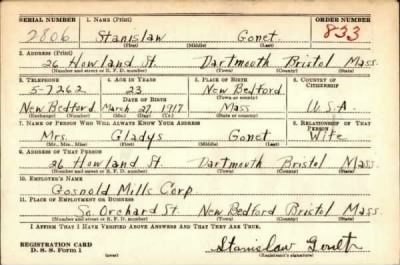 SERIAL NUMBER 1. NAME (Print) ORDER NUMBER
2806 Stanislaw Gonet 833
(First) (Middle) (Last)
2. ADDRESS (Print)
26 Howland St. Dartmouth Bristol Mass.
(Number and street or R. F. D. number) (Town) (County) (State)
3. TELEPHONE 4. AGE IN YEARS 5. PLACE OF BIRTH 6. COUNTRY OF CITIZENSHIP
5-7262 23 New Bedford
DATE OF BIRTH (Town or county)
New Bedford March 27, 1917 Mass U.S.A.
(Exchange) (Number) (Mo.) (Day) (Yr.) (State or country)
7. NAME OF PERSON WHO WILL ALWAYS KNOW YOUR ADDRESS 8. RELATIONSHIP OF THAT PERSON
Mrs. Gladys Gonet Wife
(Mr., Mrs., Miss) (First) (Middle) (Last)
9. ADDRESS OF THAT PERSON
26 Howland St. Dartmouth Bristol Mass.
(Number and street or R. F. D. number) (Town) (County) (State)
10. EMPLOYER'S NAME
Gosnold Mills Corp.
11. PLACE OF EMPLOYMENT OR BUSINESS
So. Orchard St. New Bedford Bristol Mass.
(Number and street or R. F. D. number) (Town) (County) (State)
I AFFIRM THAT I HAVE VERIFIED ABOVE ANSWERS AND THAT THEY ARE TRUE.
REGISTRATION CARD
D. S. S. Form 1 Stanislaw
(Registrant's signature)